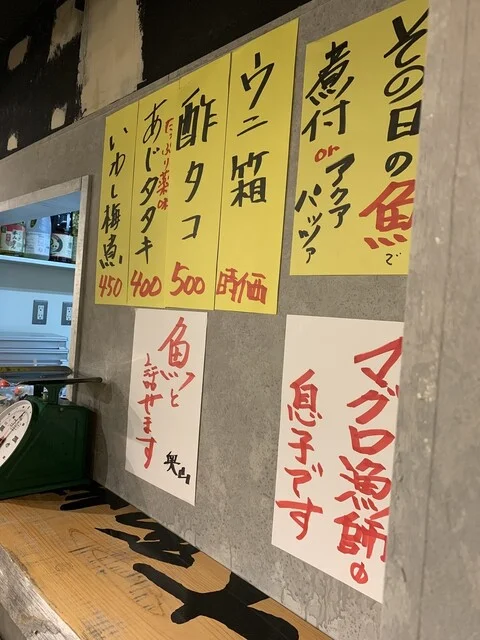 その日の魚で
煮付orアクア
パッツァ
ウニ箱
時価
酢タコ
500
あじタタキ
たっぷり薬味
400
いわし梅煮
450
マグロ漁師の
息子です
魚と
話せます
奥山